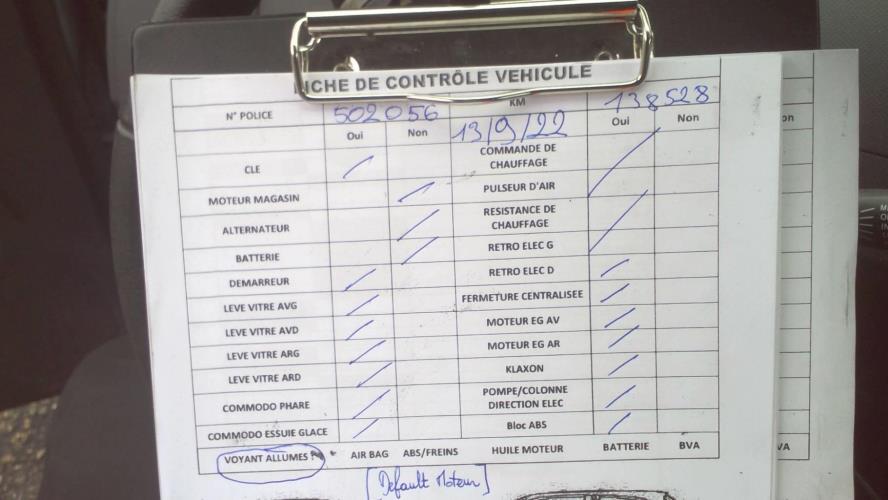 FICHE DE CONTRÔLE VEHICULE
N° POLICE 502056 KM 138528
Oui Non 13/9/22 Oui Non
CLE COMMANDE DE CHAUFFAGE
MOTEUR MAGASIN PULSEUR D'AIR
ALTERNATEUR RESISTANCE DE CHAUFFAGE
BATTERIE RETRO ELEC G
DEMARREUR RETRO ELEC D
LEVE VITRE AVG FERMETURE CENTRALISEE
LEVE VITRE AVD MOTEUR EG AV
LEVE VITRE ARG MOTEUR EG AR
LEVE VITRE ARD KLAXON
COMMODO PHARE POMPE/COLONNE DIRECTION ELEC
COMMODO ESSUIE GLACE Bloc ABS
VOYANT ALLUMES : AIR BAG ABS/FREINS HUILE MOTEUR BATTERIE BVA
[Default Moteur]